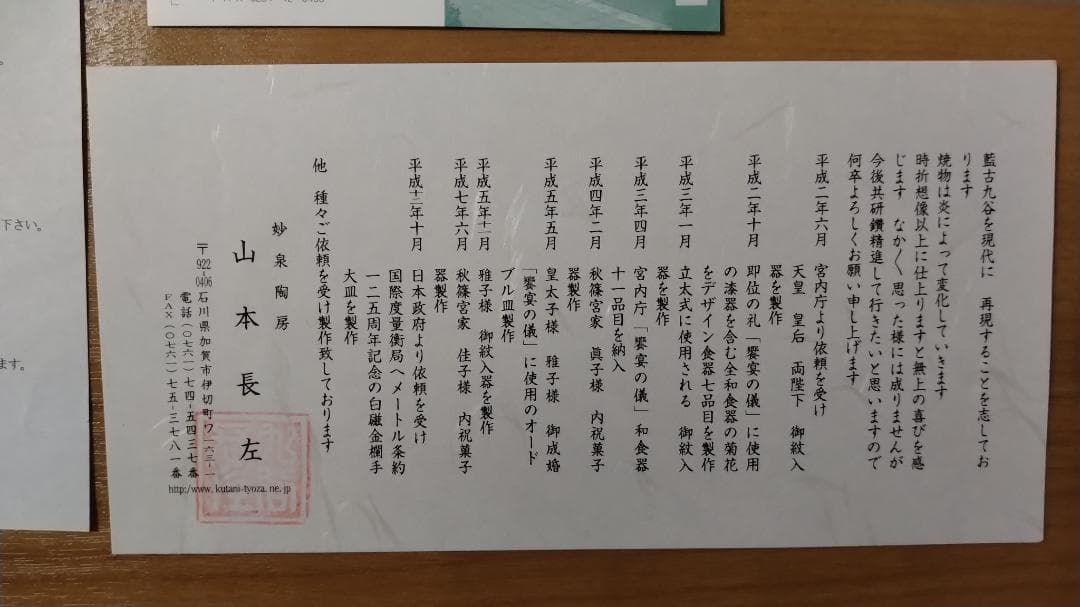 藍古九谷を現代に　再現することを志してお
ります
焼物は炎によって変化していきます
時折想像以上に仕上りますと無上の喜びを感
じます　なか〱思った様には成りませんが
今後共研鑽精進して行きたいと思いますので
何卒よろしくお願い申し上げます
平成二年六月　宮内庁より依頼を受け
天皇　皇后　両陛下　御紋入
器を製作
平成二年十月　即位の礼「饗宴の儀」に使用
の漆器を含む全和食器の菊花
をデザイン食器七品目を製作
平成三年一月　立太式に使用される　御紋入
器を製作
平成三年四月　宮内庁「饗宴の儀」和食器
十一品目を納入
平成四年二月　秋篠宮家　眞子様　内祝菓子
器製作
平成五年五月　皇太子様　雅子様　御成婚
「饗宴の儀」に使用のオード
ブル皿製作
平成五年十二月　雅子様　御紋入器を製作
平成七年六月　秋篠宮家　佳子様　内祝菓子
器製作
平成十二年十月　日本政府より依頼を受け
国際度量衡局へメートル条約
一二五周年記念の白磁金襴手
大皿を製作
他　種々ご依頼を受け製作致しております
妙泉陶房
山本長左
〒922-0406 石川県加賀市伊切町ワ一六三-一
電話（〇七六一）七四-五四三七番
FAX（〇七六一）七五-三七八一番
http://www.kutani-tyoza.ne.jp
下さい。
ます。